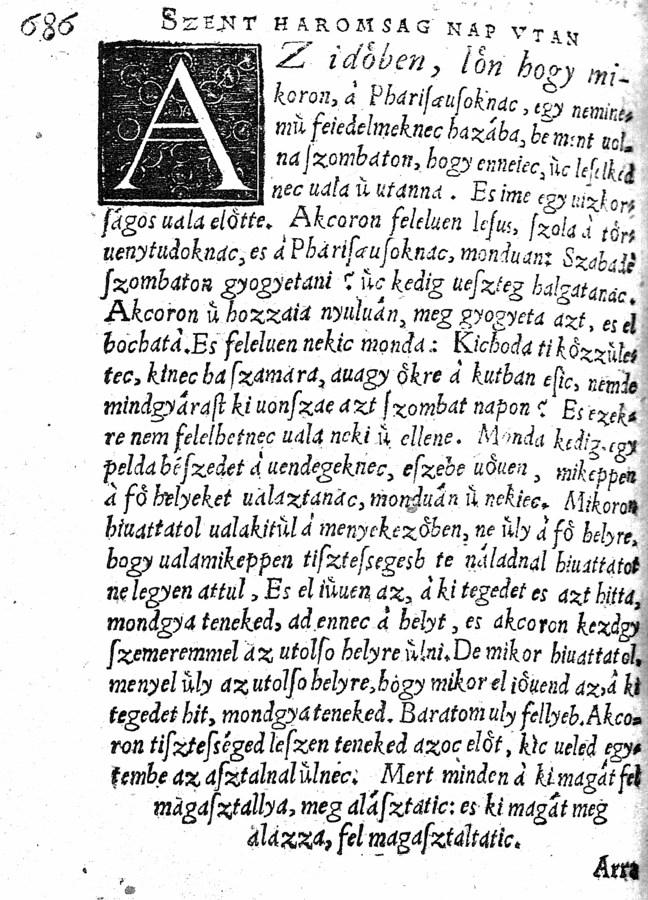 686 SZENT HAROMSAG NAP VTAN
AZ idoͤben, loͤn hogy mi-
koron, à Phariſæuſoknac, egy nemine-
muͤ feiedelmeknec hazába, be ment uol-
na ſzombaton, hogy enneiec, uͤc leſelked
nec uala uͤ utanna. Es ime egy uizkor-
ſágos uala eloͤtte. Akcoron feleluen Ieſus, ſzola à toͤr-
uenytudoknac, es à Phariſæuſoknac, monduan: Szabadé
ſzombaton gyogyetani? uͤc kedig ueſzteg halgatanac.
Akcoron uͤ hozzaia nyuluán, meg gyogyeta azt, es el
bochatá. Es feleluen nekic monda: Kichoda ti koͤzzuͤle-
tec, kinec ha ſzamara, auagy oͤkre à kutban eſic, nemde
mindgyáraſt ki uonſzae azt ſzombat napon? Es ezek-
re nem felelhetnec uala neki uͤ ellene. Monda kedig egy
pelda béſzedet à uendegeknec, eſzebe uoͤuen, mikeppen
à foͤ helyeket ualaztanac, monduán uͤ nekiec. Mikoron
hiuattatol ualakituͤl à menyekezoͤben, ne uͤly à foͤ helyre,
hogy ualamikeppen tiſzteſsegesb te náladnal hiuattatot
ne legyen attul, Es el iuͤuen az, à ki tegedet es azt hitta,
mondgya teneked, ad ennec à helyt, es akcoron kezdgy
ſzemeremmel az utolſo helyre uͤlni. De mikor hiuattatol,
menyel uͤly az utolſo helyre, hogy mikor el ioͤuend az, à ki
tegedet hit, mondgya teneked. Baratom uly fellyeb. Akco-
ron tiſzteſséged leſzen teneked azoc eloͤt, kic ueled egye-
tembe az aſztalnal uͤlnec. Mert minden à ki magát fel
magaſztallya, meg aláſztatic: es ki magát meg
alázza, fel magaſztaltatic.
Arra